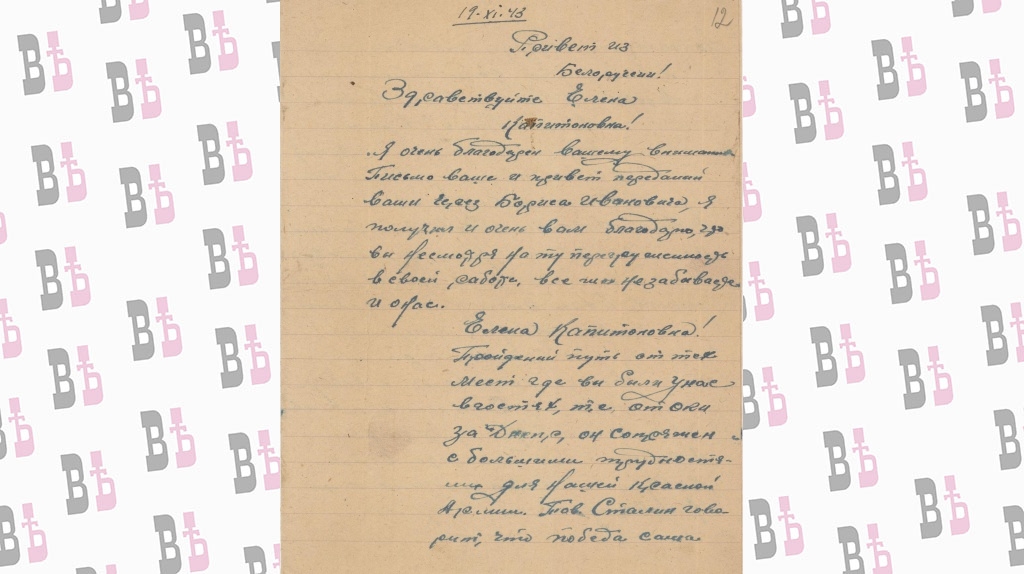 19-XI-43
12
Привет из
Белоруссии!
Здравствуйте Елена
Капитоновна!
Я очень благодарен вашему внимани
Письмо ваше и привет переданий
ваши через Бориса Ивановича, я
получил и очень вам благодарю, что
вы несмотря на ту перегруженность
в своей работе, все же незабываете
и о нас.
Елена Капитоновна!
Пройдений путь от тех
мест где вы были у нас
в гостях, т.е. от Оки
за Днепр, он сопряжен
с большими трудностя-
ми для нашей Красной
Армии. Тов. Сталин гово
рит, что победа сама